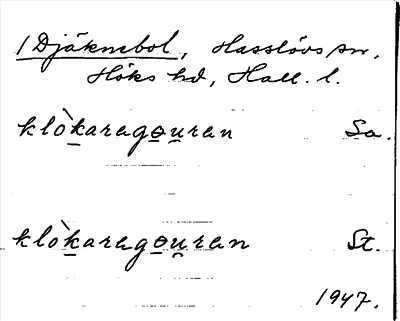 /Djäknebol, Hasslövs sn.
Höks hd, Hall. l.
klòkaragọuran Sa.
klòkaragọuran St.
1947.